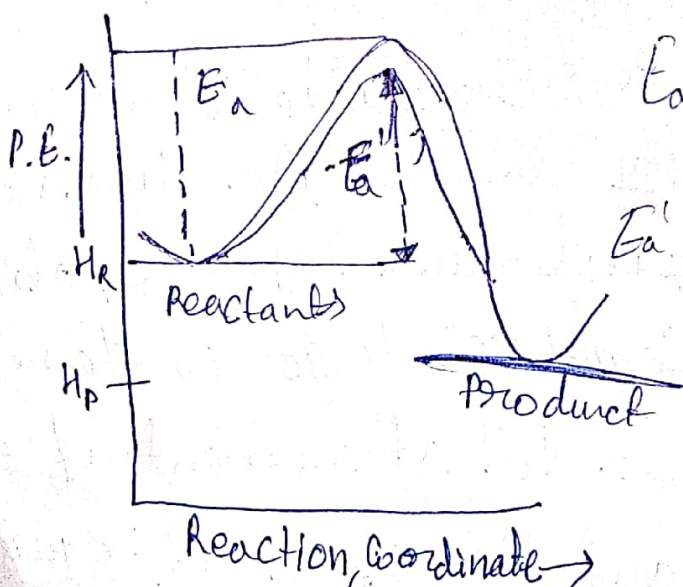 Ea
Ea
P.E.
Ea'
Ea'
HR
Reactants
HP
Product
Reaction Coordinate →